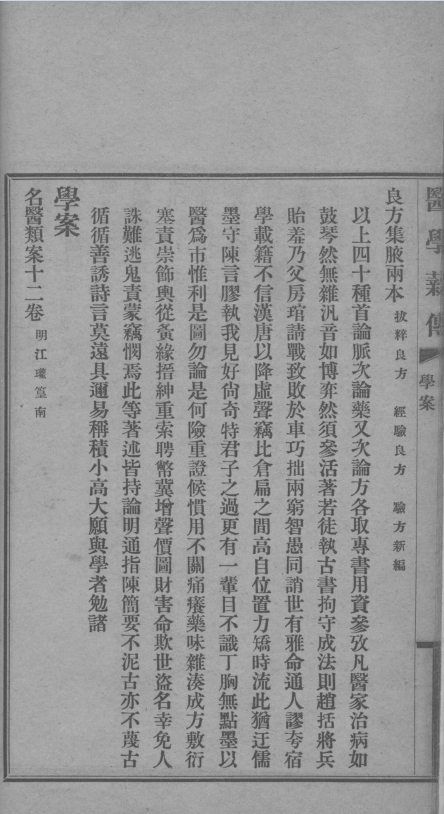 醫學薪傳
學案
良方集腋兩本 拔粹良方 經驗良方 驗方新編
以上四十種首論脈次論藥又次論方各取專書用資參攷凡醫家治病如
鼓琴然無雜汎音如博弈然須參活著若徒執古書拘守成法則趙括將兵
貽羞乃父房琯請戰致敗於車巧拙兩窮智愚同誚世有雅命通人謬夸宿
學載籍不信漢唐以降虛聲竊比倉扁之間高自位置力矯時流此猶迂儒
墨守陳言膠執我見好尙奇特君子之過更有一輩目不識丁胸無點墨以
醫爲市惟利是圖勿論是何險重證候慣用不關痛癢藥味雜湊成方敷衍
塞責崇飾輿從夤緣搢紳重索聘幣冀增聲價圖財害命欺世盜名幸免人
誅難逃鬼責蒙竊憫焉此等著述皆持論明通指陳簡要不泥古亦不蔑古
循循善誘詩言莫遠具邇易稱積小高大願與學者勉諸
學案
名醫類案十二卷 明江瓘篁南